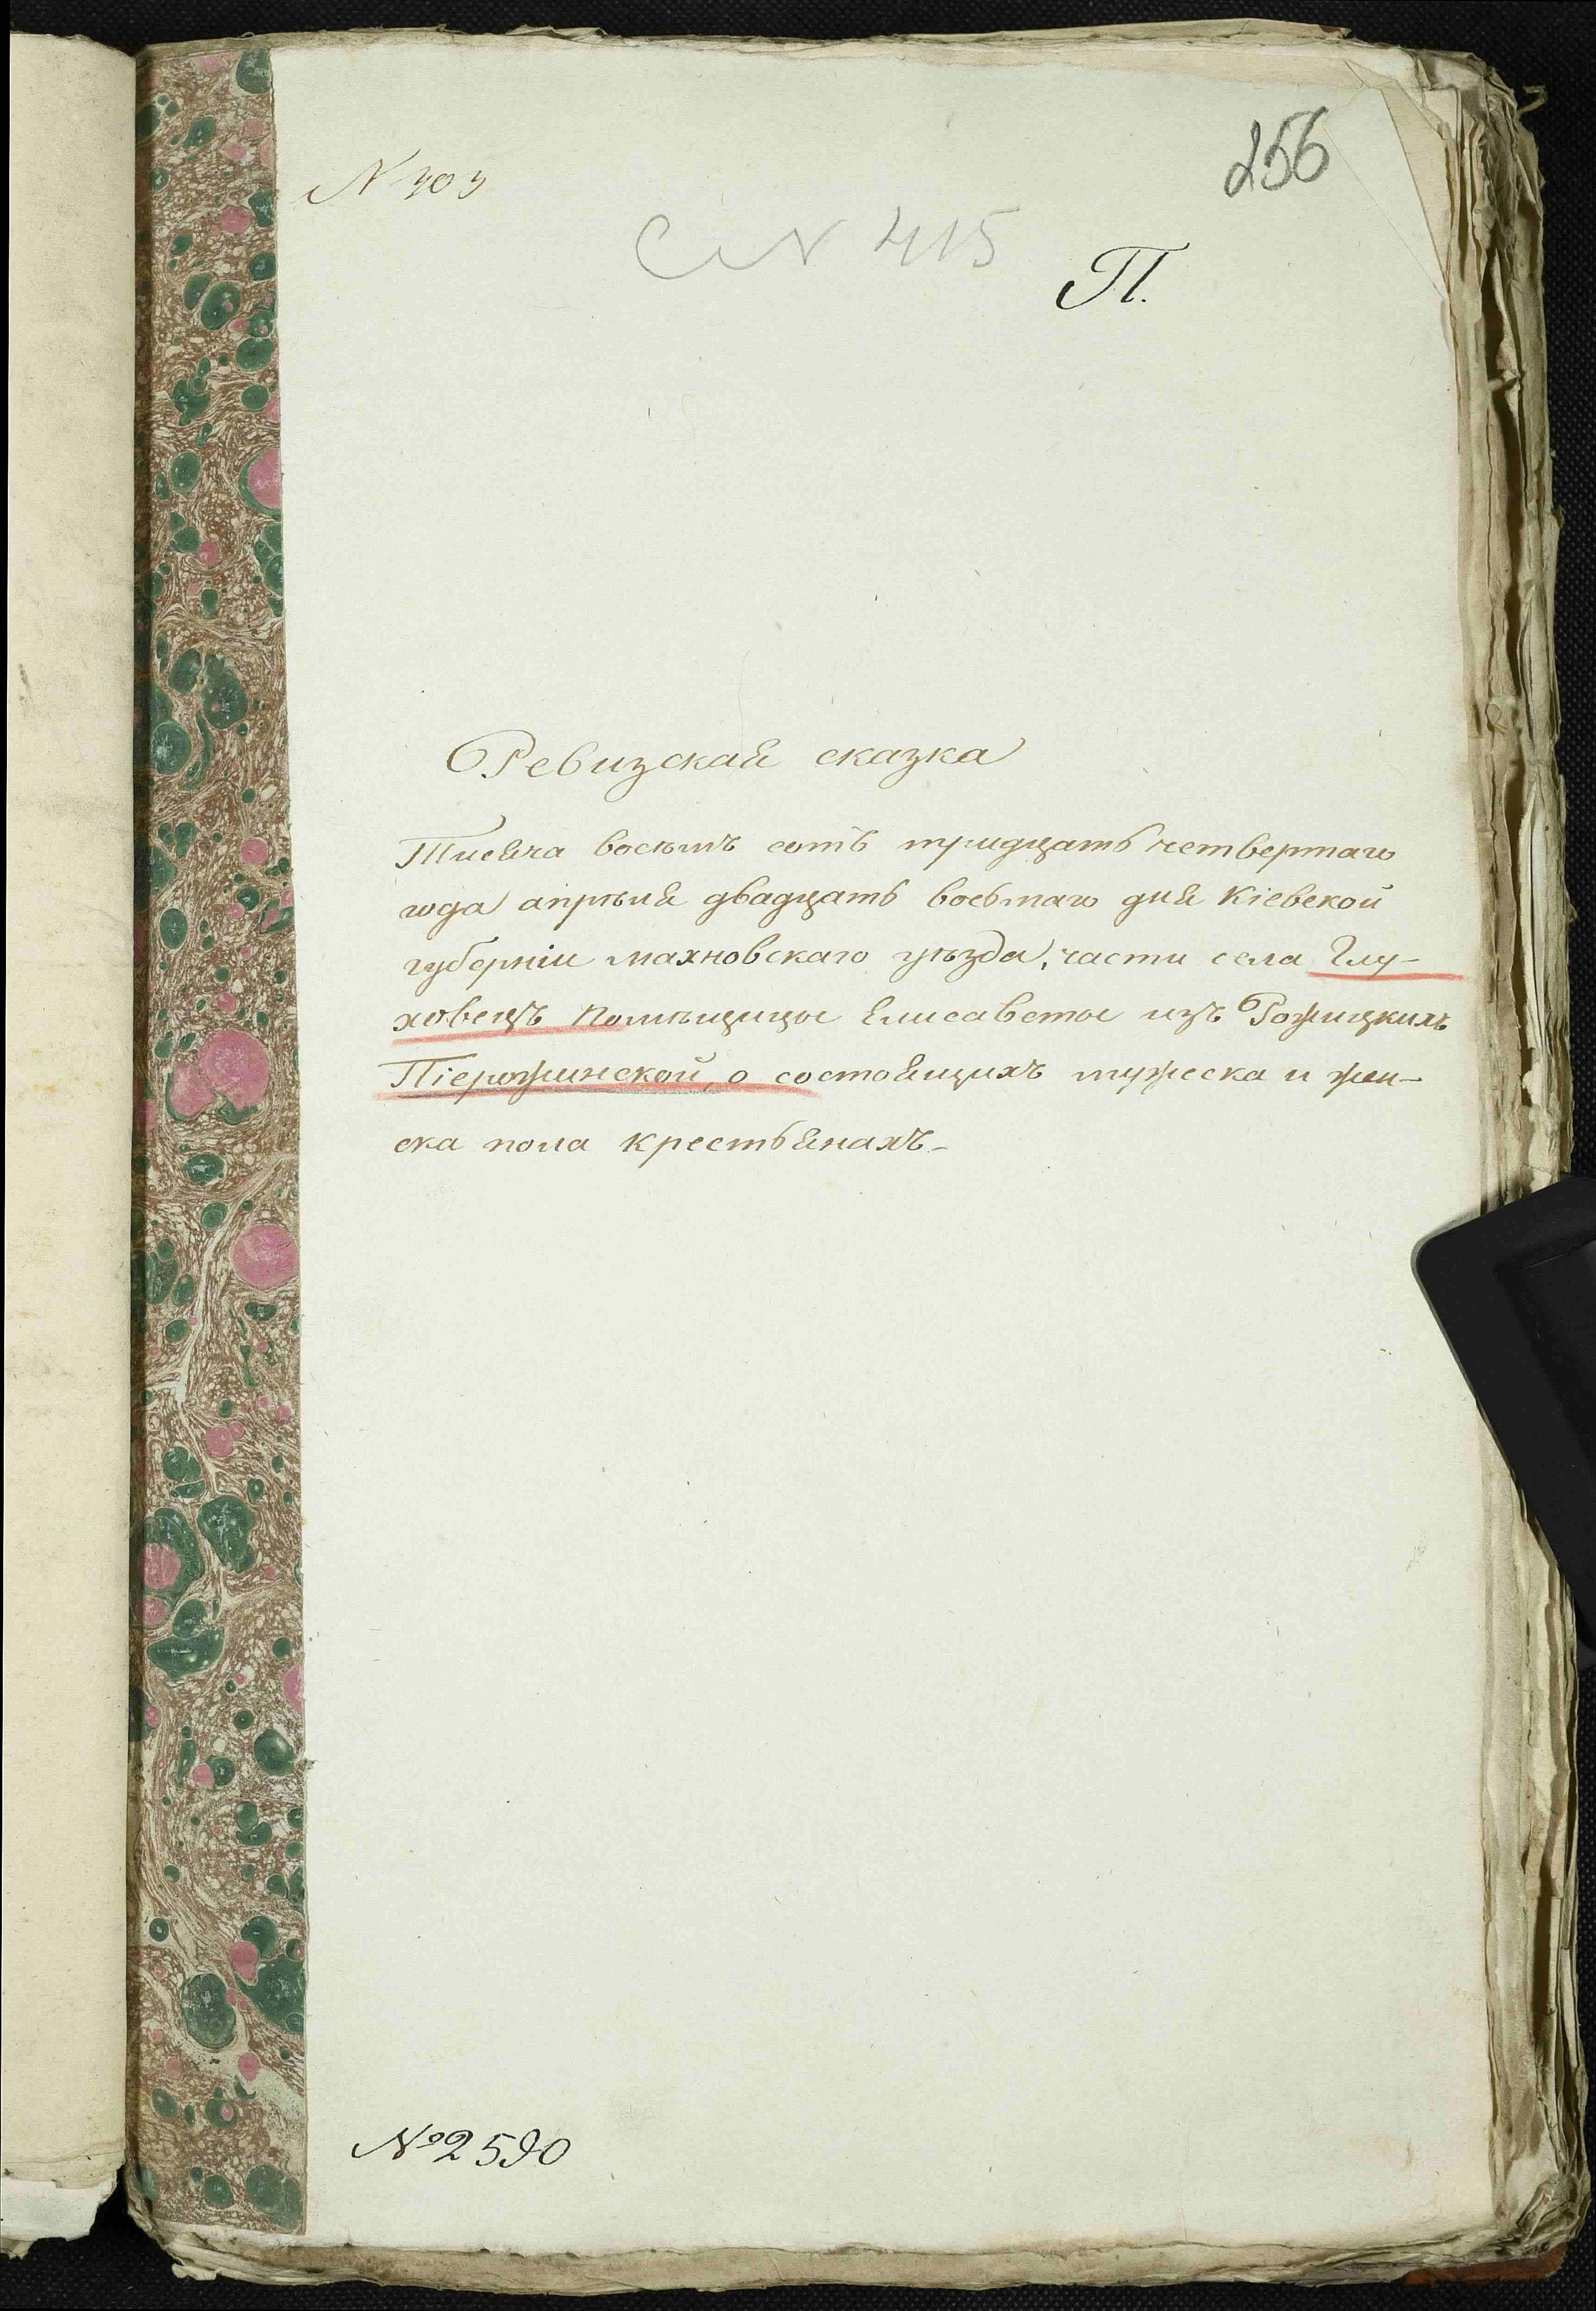 256
N 303
N 415
П.
Ревизская сказка
Тисяча восѣмъ сотъ тридцать четвертаго
года апрѣля двадцать восьмаго дня Кіевской
губерніи махновскаго уѣзда, части села Глу-
ховецъ помѣщицы Елисаветы изъ Рожицкихъ
Піерожинской, о состоящихъ мужеска и жен-
ска пола крестьянахъ-
№ 2590